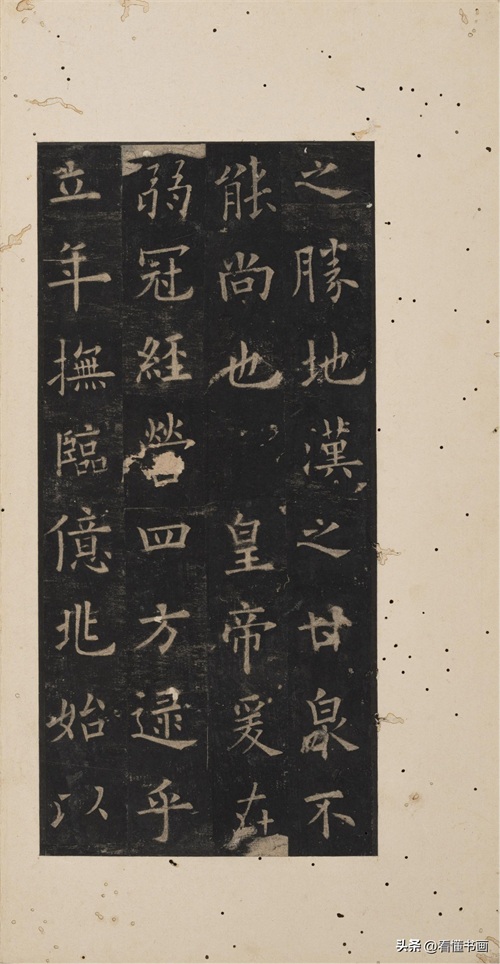 之勝地漢之甘泉不
能尚也皇帝爰在
弱冠經營四方逯乎
立年撫臨億兆始以
头条 @看懂书画